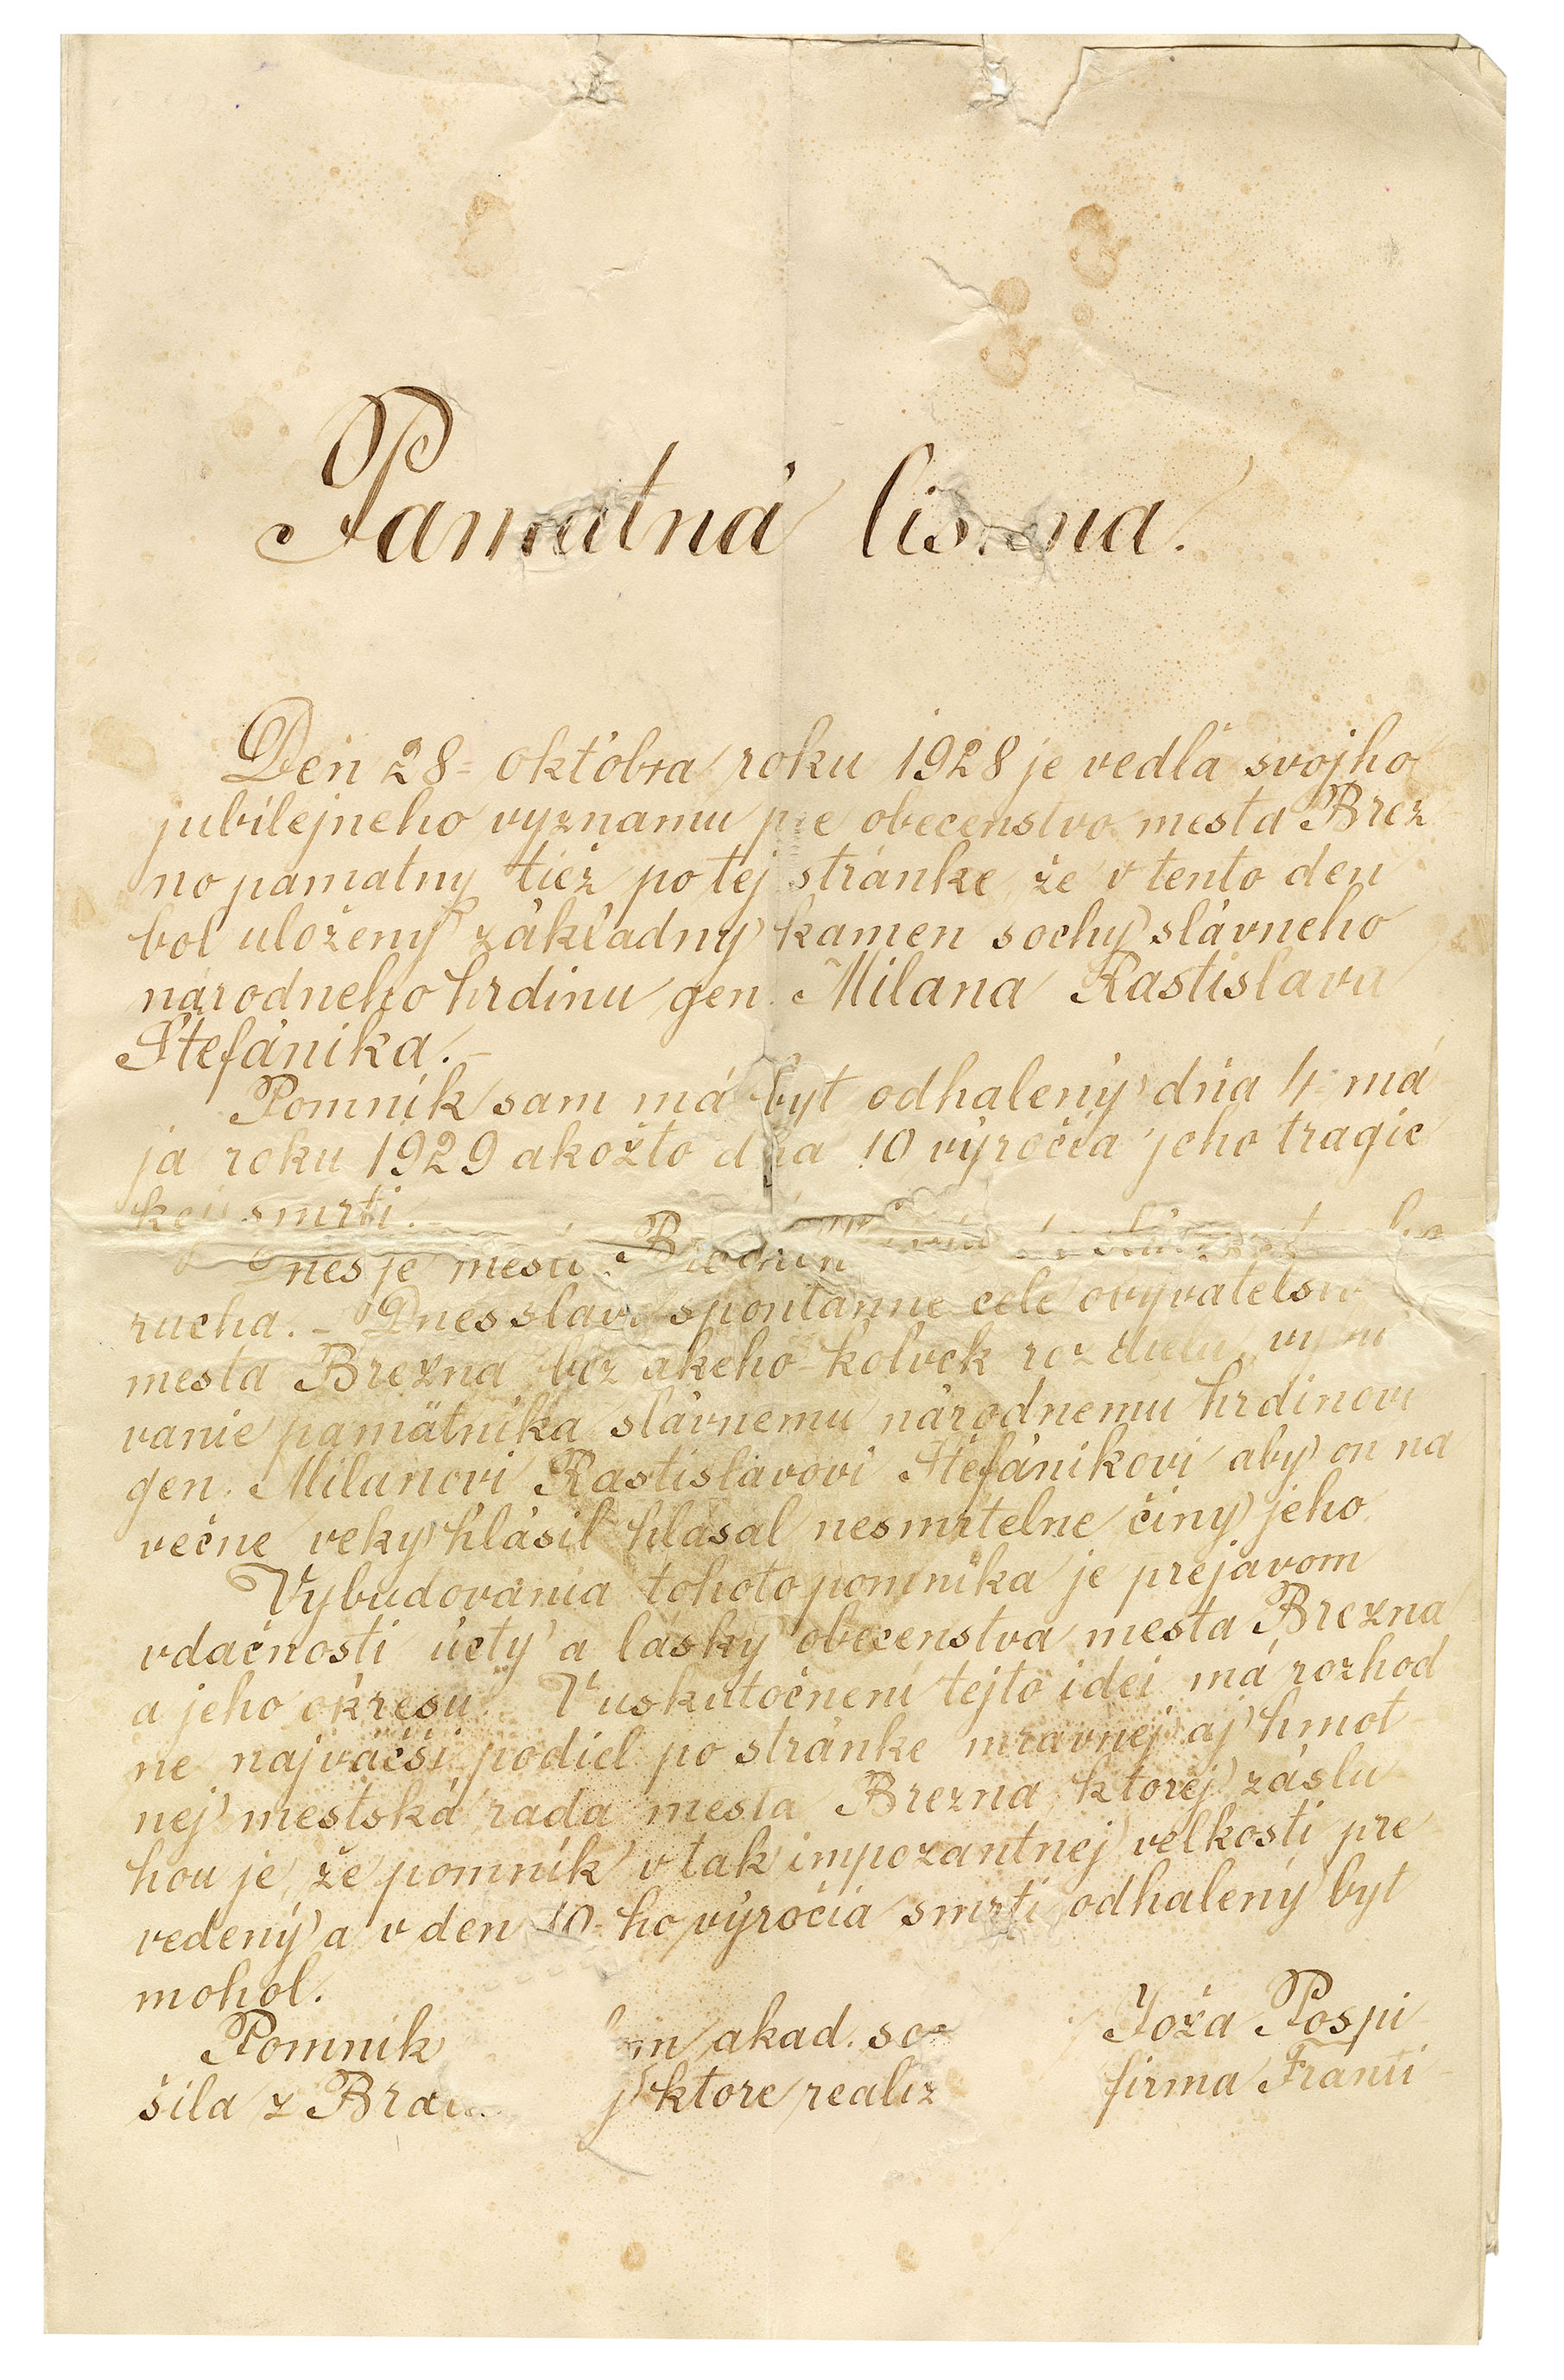 Pamätná listina.
Deň 28- októbra roku 1928 je vedľa svojho
jubilejneho vyznamu pre obecenstvo mesta Brez
no pamatny tiež po tej stránke, že v tento den
bol uložený základný kamen sochy slávneho
národneho hrdinu gen. Milana Rastislava
Štefánika.-
Pomník sam má byť odhalený dňa 4- má
ja roku 1929 akožto dňa 10 výročia jeho tragic
kej smrti.-
Dnes je mesto
rucha.- Dnes slavi spontánne cele obyvatelstvo
mesta Brezna bez akeho-kolvek rozdielu
vanie pamätníka slávnemu národnemu hrdinovi
gen. Milanovi Rastislavovi Štefánikovi aby on na
večne veky hlásil hlásal nesmrtelne činy jeho.
Vybudovánia tohoto pomníka je prejavom
vdačnosti úcty a lásky obecenstva mesta Brezna
a jeho okresu.- V uskutočnení tejto idei má rozhod
ne najväčší podiel po stránke mravnej aj hmot-
nej mestská rada mesta Brezna, ktorej záslu
hou je, že pomník v tak impozantnej velkosti pre
vedený a v den 10-ho výročia smrti odhalený byť
mohol.
Pomník akad. Joža Pospi-
šila z ktore realiz firma Franti-